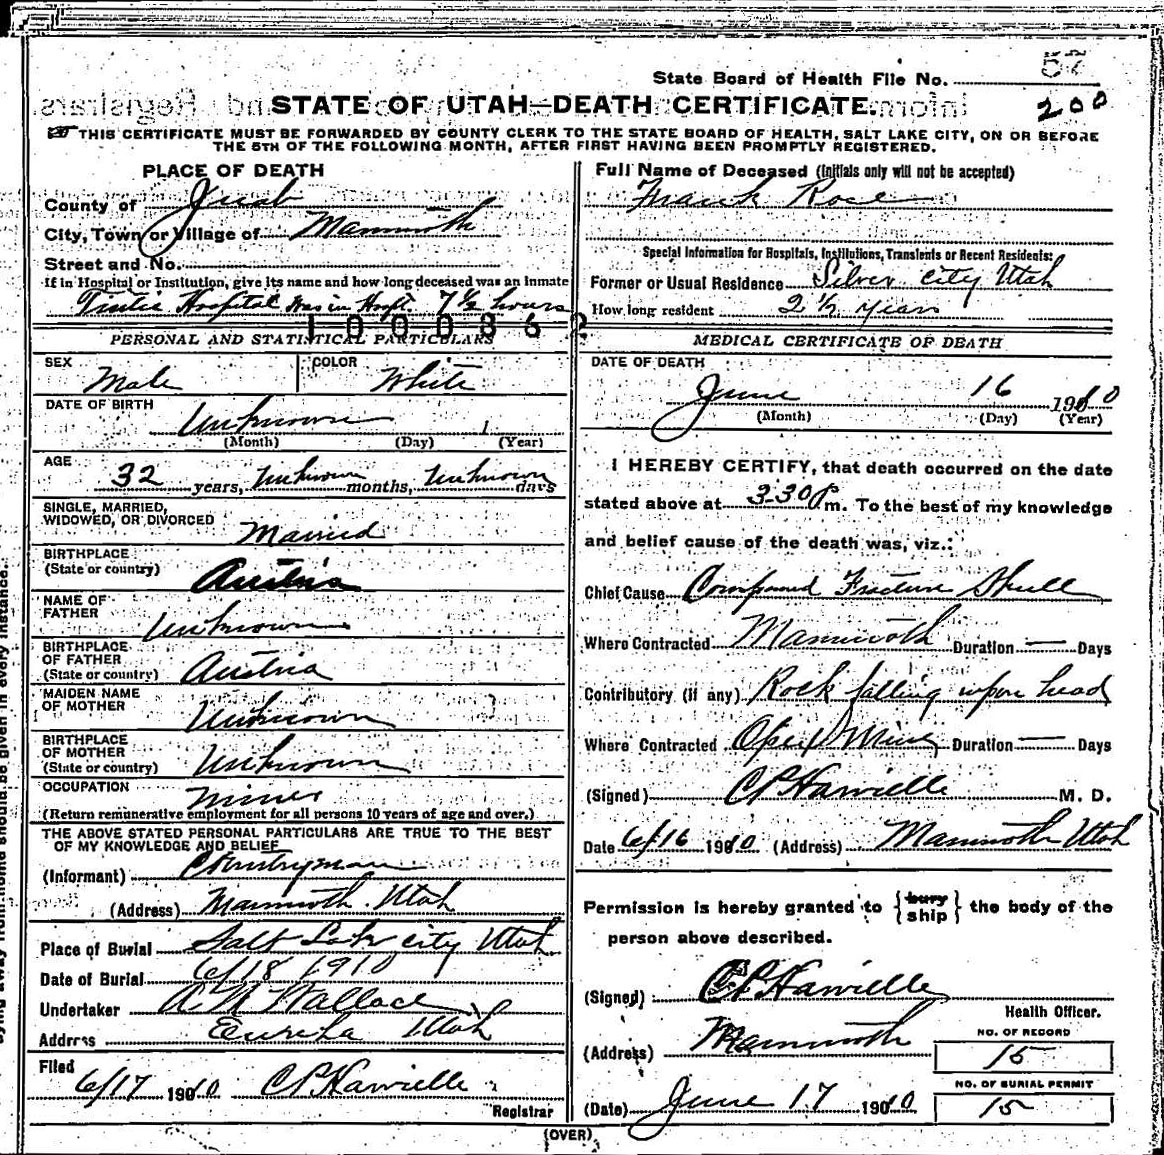 57
State Board of Health File No.
200
STATE OF UTAH—DEATH CERTIFICATE.
THIS CERTIFICATE MUST BE FORWARDED BY COUNTY CLERK TO THE STATE BOARD OF HEALTH, SALT LAKE CITY, ON OR BEFORE
THE 5TH OF THE FOLLOWING MONTH, AFTER FIRST HAVING BEEN PROMPTLY REGISTERED.
PLACE OF DEATH
County of Juab
City, Town or Village of Mammoth
Street and No.
If in Hospital or Institution, give its name and how long deceased was an inmate
Tintic Hospital Was in Hospt. 7 1/2 hours
1000862
Full Name of Deceased (Initials only will not be accepted)
Frank Rose
Special Information for Hospitals, Institutions, Transients or Recent Residents:
Former or Usual Residence Silver City Utah
How long resident 2 1/2 years
PERSONAL AND STATISTICAL PARTICULARS
SEX Male
COLOR White
DATE OF BIRTH Unknown
(Month) (Day) (Year)
AGE 32 years, Unknown months, Unknown days
SINGLE, MARRIED,
WIDOWED, OR DIVORCED Married
BIRTHPLACE
(State or country) Austria
NAME OF
FATHER Unknown
BIRTHPLACE
OF FATHER
(State or country) Austria
MAIDEN NAME
OF MOTHER Unknown
BIRTHPLACE
OF MOTHER
(State or country) Unknown
OCCUPATION Miner
(Return remunerative employment for all persons 10 years of age and over.)
THE ABOVE STATED PERSONAL PARTICULARS ARE TRUE TO THE BEST
OF MY KNOWLEDGE AND BELIEF
(Informant) Countryman
(Address) Mammoth Utah
Place of Burial Salt Lake City Utah
Date of Burial 6/18 1910
Undertaker A N Wallace
Address Eureka Utah
Filed
6/17 1910 C P Hawielle
Registrar
MEDICAL CERTIFICATE OF DEATH
DATE OF DEATH
June 16 1910
(Month) (Day) (Year)
I HEREBY CERTIFY, that death occurred on the date
stated above at 3-30 P m. To the best of my knowledge
and belief cause of the death was, viz.:
Chief Cause Compound Fracture Skull
Where Contracted Mammoth Duration — Days
Contributory (if any) Rock falling upon head
Where Contracted Opex Mine Duration — Days
(Signed) C P Hawielle M. D.
Date 6/16 1910 (Address) Mammoth Utah
Permission is hereby granted to {bury ship} the body of the
person above described.
(Signed) C P Hawielle
Health Officer.
(Address) Mammoth
NO. OF RECORD
15
NO. OF BURIAL PERMIT
15
(Date) June 17 1910
(OVER)